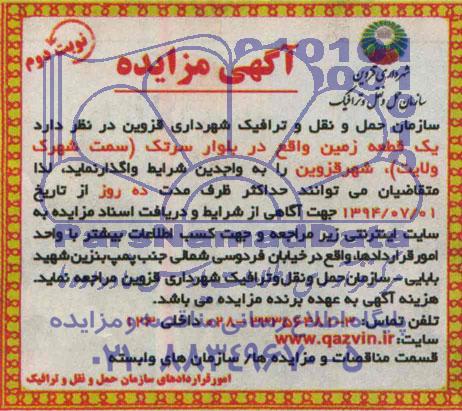 نوبت دوم
آگهی مزایده
شهرداری قزوین
سازمان حمل و نقل و ترافیک
سازمان حمل و نقل و ترافیک شهرداری قزوین در نظر دارد
یک قطعه زمین واقع در بلوار سرتک (سمت شهرک
ولایت)، شهرقزوین را به واجدین شرایط واگذارنماید، لذا
متقاضیان می توانند حداکثر ظرف مدت ده روز از تاریخ
۱۳۹۴/۰۷/۰۱ جهت آگاهی از شرایط و دریافت اسناد مزایده به
سایت اینترنتی زیر مراجعه و جهت کسب اطلاعات بیشتر با واحد
امور قراردادها،واقع در خیابان فردوسی شمالی جنب پمپ بنزین شهید
بابایی - سازمان حمل و نقل وترافیک شهرداری قزوین مراجعه نماید.
هزینه آگهی به عهده برنده مزایده می باشد.
تلفن تماس:
سایت: www.qazvin.ir
قسمت مناقصات و مزایده ها/ سازمان های وابسته
امورقراردادهای سازمان حمل و نقل و ترافیک
ParsNamadData
پایگاه اطلاع رسانی مناقصه و مزایده